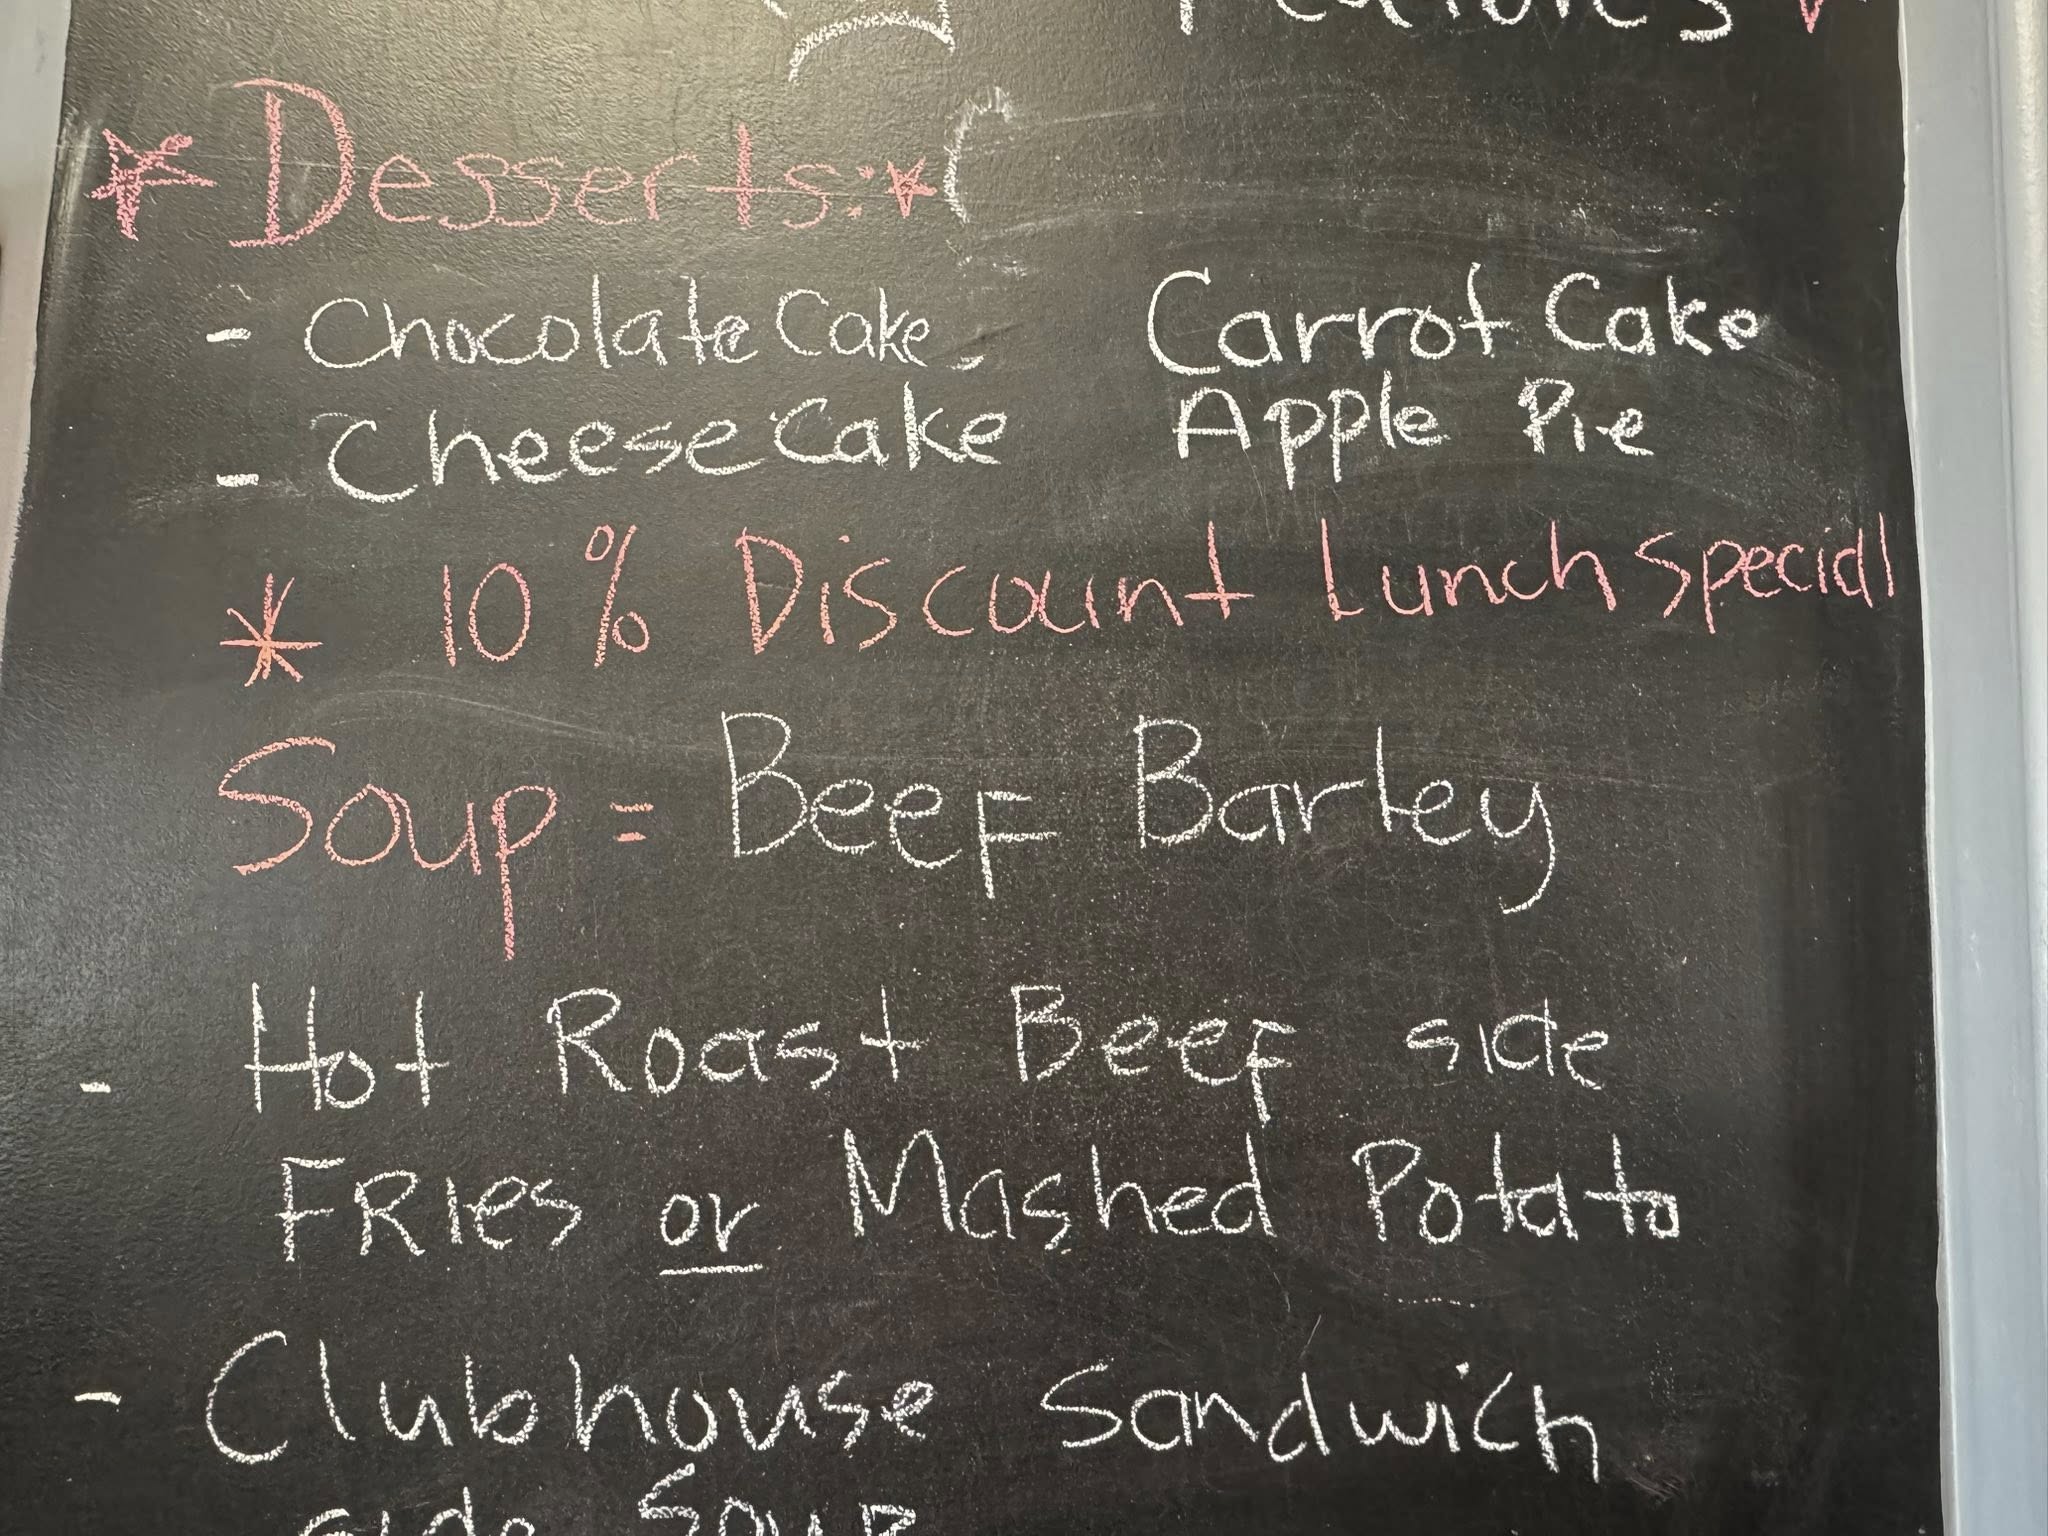 Features
* Desserts: *
- Chocolate Cake, Carrot Cake
- Cheese Cake Apple Pie
* 10% Discount Lunch Special
Soup = Beef Barley
- Hot Roast Beef side
Fries or Mashed Potato
- Clubhouse Sandwich
side Soup